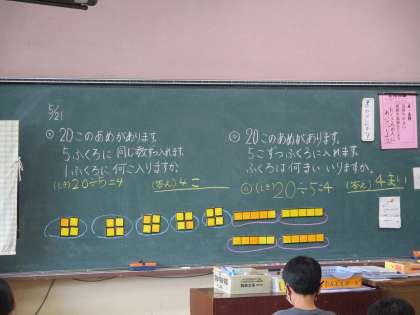 5/21
20このあめがあります。
5ふくろに同じ数ずつ入れます。
1ふくろに何こ入りますか。
(しき)20÷5=4 (答え)4こ
20このあめがあります。
5こずつふくろに入れます。
ふくろは何まいいりますか。
(しき)20÷5=4 (答え)4まい